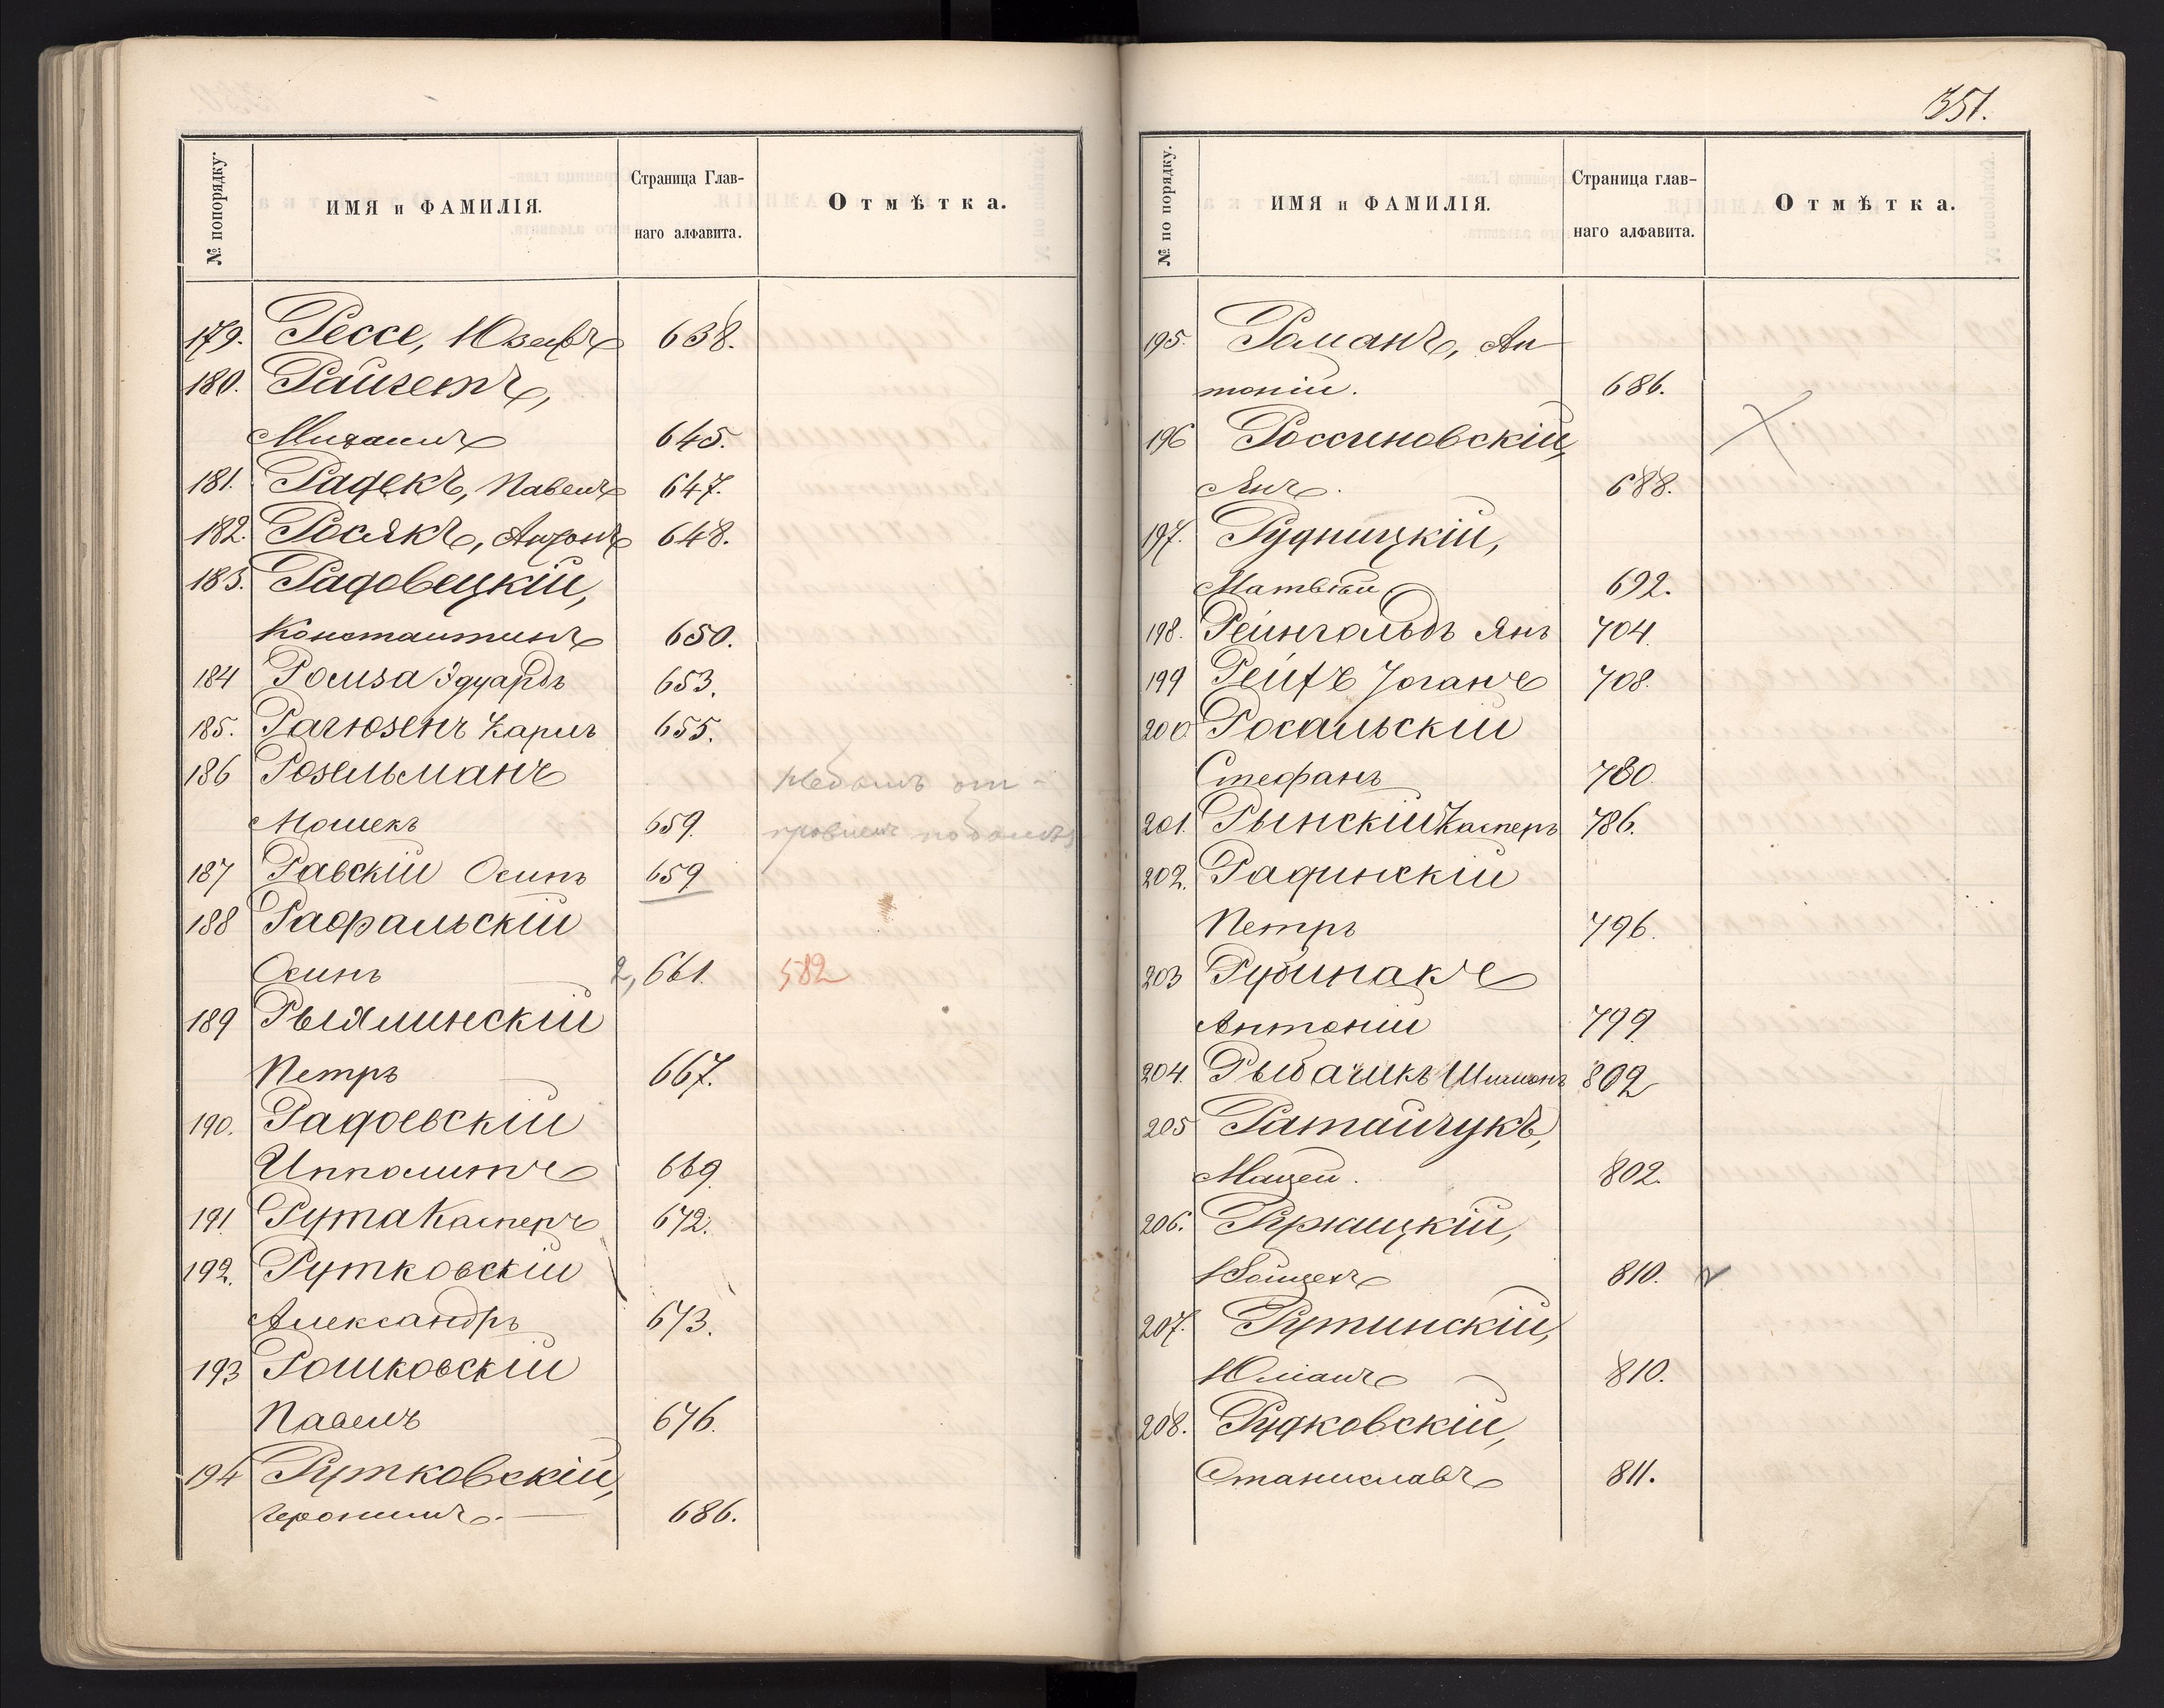 № попорядку.
ИМЯ и ФАМИЛІЯ.
Страница Глав-
наго алфавита.
Отмѣтка.
179. Рессе, Юзефъ 638.
180. Райзетъ,
Михаилъ 645.
181. Радекъ, Павелъ 647.
182. Росякъ, Антонъ 648.
183. Радовецкій,
Константинъ 650.
184 Ромза Эдуардъ 653.
185. Рагюзенъ Карлъ 655.
186 Розельманъ
Мошекъ 659.
187 Равскій Осипъ 659
188 Рафальскій
Осипъ 2, 661. 582
189 Рыялинскій
Петръ 667.
190. Радоевскій
Ипполитъ 669
191 Рута Касперъ 672.
192. Рутковскій
Александръ 673.
193 Рошковскій
Павелъ 676.
194 Рутковскій,
Іеронимъ. 686.
351.
№ по порядку.
ИМЯ и ФАМИЛІЯ.
Страница глав-
наго алфавита.
Отмѣтка.
195. Романъ, Ан-
тоній. 686.
196 Россиновскій,
Янъ. 688.
197. Рудницкій,
Матвѣй 692.
198. Рейнгольдъ Янъ 704
199 Рейфъ Іоганъ 708.
200 Росальскій
Стефанъ 780.
201. Рынскій Касперъ 786.
202. Радинскій
Петръ 796.
203 Рубинакъ
Антоній 799.
204. Рыбачикъ Шимонъ 802
205 Ратайчукъ,
Мацей. 802.
206. 
Войцехъ 810.
207. Рутинскій,
Юліанъ 810.
208. Рудковскій,
Станиславъ 811.